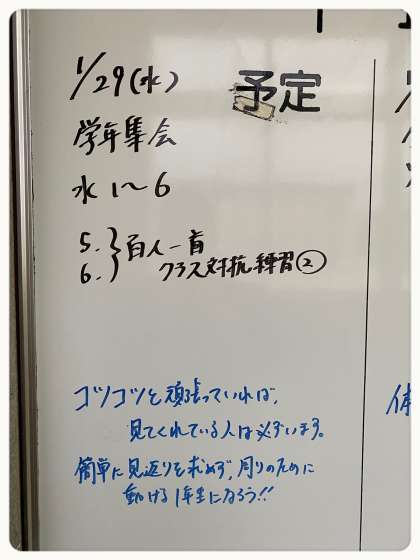 1/29(水)
予定
学年集会
水 1〜6
5. } 百人一首
6. } クラス対抗練習②
コツコツと頑張っていれば、
見てくれている人は必ずいます。
簡単に見返りを求めず、周りのために
動ける1年生になろう!!